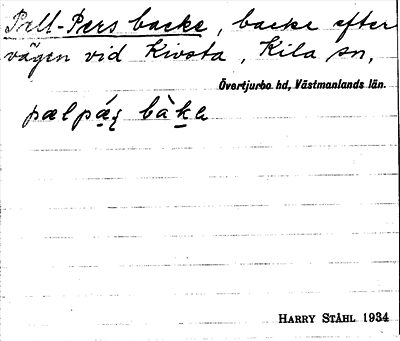 Päll-Pers backe, backe efter
vägen vid Kivsta, Kila sn,
Övertjurbo hd, Västmanlands län.
pælpǽ̣ʂ bὰḳa
HARRY STÅHL 1934